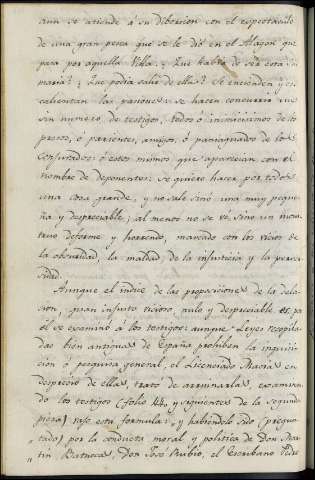 aun se atiende à su diversion con el espectaculo
de una gran pesca que se le dió en el Alagon que
pasa por aquella Villa. ¿Que habia de ser esta Su
maria? ¿Que podia salir de ella? Se encienden y es
calientan las pasiones: se hacen concurrir un
sin numero de testigos, todos ó inimicisimos de los
presos, ó parientes, amigos, ó paniaguados de los
Conjurados: ó estos mismos que aparecian con el
nombre de Deponentes: Se quiere hacer por todos
una cosa grande, y no sale sino una muy peque
ña y despreciable; al menos no se vé, sino un mons
truo deforme y horrendo, marcado con los vicios de
la obscuridad, la maldad, de la injusticia y la perver
sidad.
Aunque el indice de las proposiciones de la dela
cion, quan injusto vicioso, nulo y despreciable es, por
él se examinó à los testigos: aunque Leyes recopila
das bien antiguas de España prohiben la inquisi
ción ó pesquisa general, el Licenciado Macia en
desprecio de ellas, trató de arruinarla, examinan
do los testigos (folio y siguientes de la segunda
pieza) bajo esta formula: y habiendolo sido (pregun
tado) por la conducta moral y politica de Don Mar
tin Batuecas, Don José Rubio, el Escribano Pedro